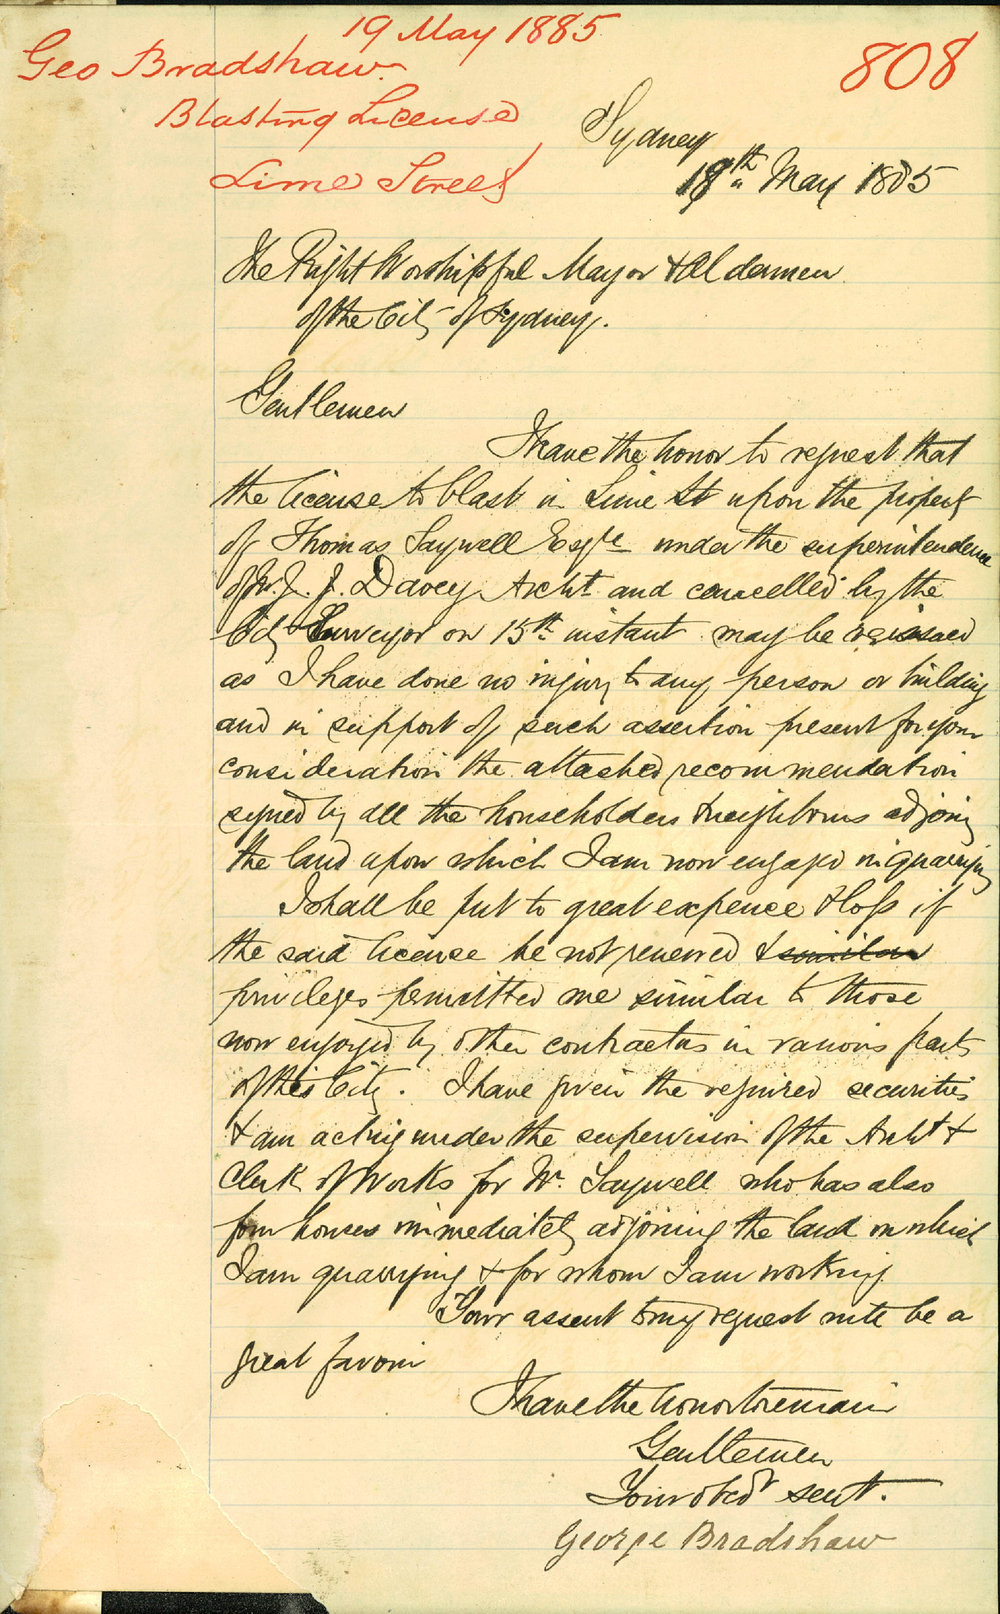 19 May 1885
Geo Bradshaw
808
Blasting License
Lime Street
Sydney
18th May 1885
The Right Worshipful Mayor & Aldermen
of the City of Sydney.
Gentlemen
I have the honor to request that
the license to blast in Lime St upon the property
of Thomas Saywell Esqre under the superintendence
of Mr. J. J. Davey Archt and cancelled by the
City Surveyor on 15th instant may be reissued
as I have done no injury to any person or building
and in support of such assertion present for your
consideration the attached recommendation
signed by all the householders & neighbours adjoing
the land upon which I am now engaged in quarrying
I shall be put to great expence & loss if
the said license be not renewed & similar
privileges permitted me similar to those
now enjoyed by other contractors in various parts
of this City. I have given the required securities
& am acting under the supervision of the Archt &
Clerk of Works for Mr. Saywell who has also
four houses immediately adjoining the land on which
I am quarrying & for whom I am working
Your assent to my request will be a
great favour
I have the honor to remain
Gentlemen
Your obedt servt.
George Bradshaw